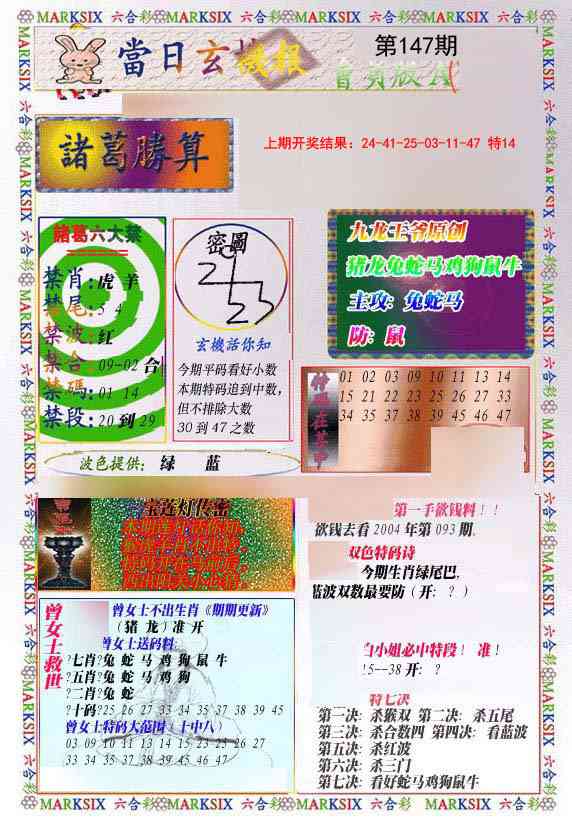 MARKSIX 六合彩 MARKSIX 六合彩 MARKSIX 六合彩 MARKSIX 六合彩
當日玄機報
第147期
會員版A
諸葛勝算
上期开奖结果：24-41-25-03-11-47 特14
諸葛六大禁
禁肖:虎 羊
禁尾:5 4
禁波:红
禁合:09-02 合
禁碼:01 14
禁段:20 到 29
密圖
玄機活你知
今期平码看好小数
本期特码追到中数,
但不排除大数
30 到 47 之数
九龙王爷原创
猪龙兔蛇马鸡狗鼠牛
主攻: 兔蛇马
防: 鼠
01 02 03 09 10 11 13 14
15 21 22 23 25 26 27 33
34 35 37 38 39 45 46 47
波色提供: 绿 蓝
宝莲灯传密
第一手欲钱料！！
欲钱去看 2004 年第 093 期.
双色特码诗
今期生肖绿尾巴,
蓝波双数最要防（开: ？）
白小姐必中特段！ 准！
15--38 开: ？
曾女士救世
曾女士不出生肖《期期更新》
（猪 龙）准 开
曾女士送码料:
?七肖?兔 蛇 马 鸡 狗 鼠 牛
?五肖?兔 蛇 马 鸡 狗
?二肖?兔 蛇
?十码?25 26 27 33 34 35 37 38 39 45
曾女士特码大范围（十中八）
03 09 10 11 13 14 15 23 25 26 27
33 34 35 37 38 39 45 46 47
特七决
第一决: 杀猴双 第二决: 杀五尾
第三决: 杀合数四 第四决: 看蓝波
第五决: 杀红波
第六决: 杀三门
第七决: 看好蛇马鸡狗鼠牛
MARKSIX 六合彩 MARKSIX 六合彩 MARKSIX 六合彩 MARKSIX 六合彩